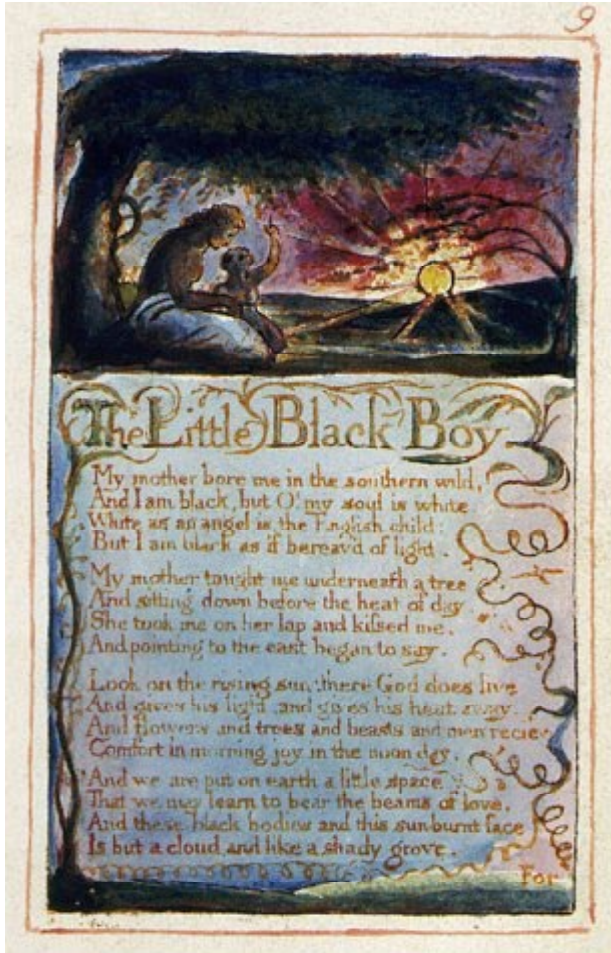 9
The Little Black Boy
My mother bore me in the southern wild,
And I am black, but O! my soul is white
White as an angel is the English child:
But I am black as if bereav'd of light.
My mother taught me underneath a tree
And sitting down before the heat of day
She took me on her lap and kissed me,
And pointing to the east began to say.
Look on the rising sun: there God does live
And gives his light, and gives his heat away.
And flowers and trees and beasts and men recieve
Comfort in morning joy in the noon day.
And we are put on earth a little space
That we may learn to bear the beams of love,
And these black bodies and this sun-burnt face
Is but a cloud, and like a shady grove.
For